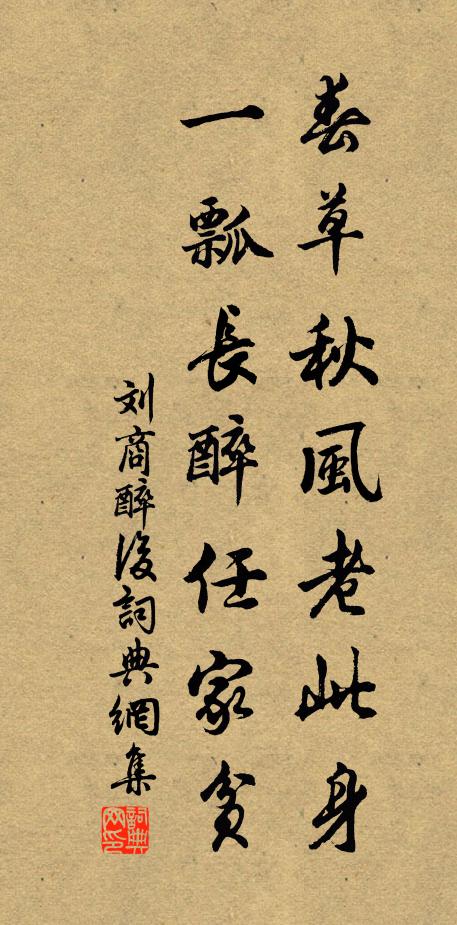 春草秋風老此身
一瓢長醉任家貧
刘商醉後詞典網集
詞典網印